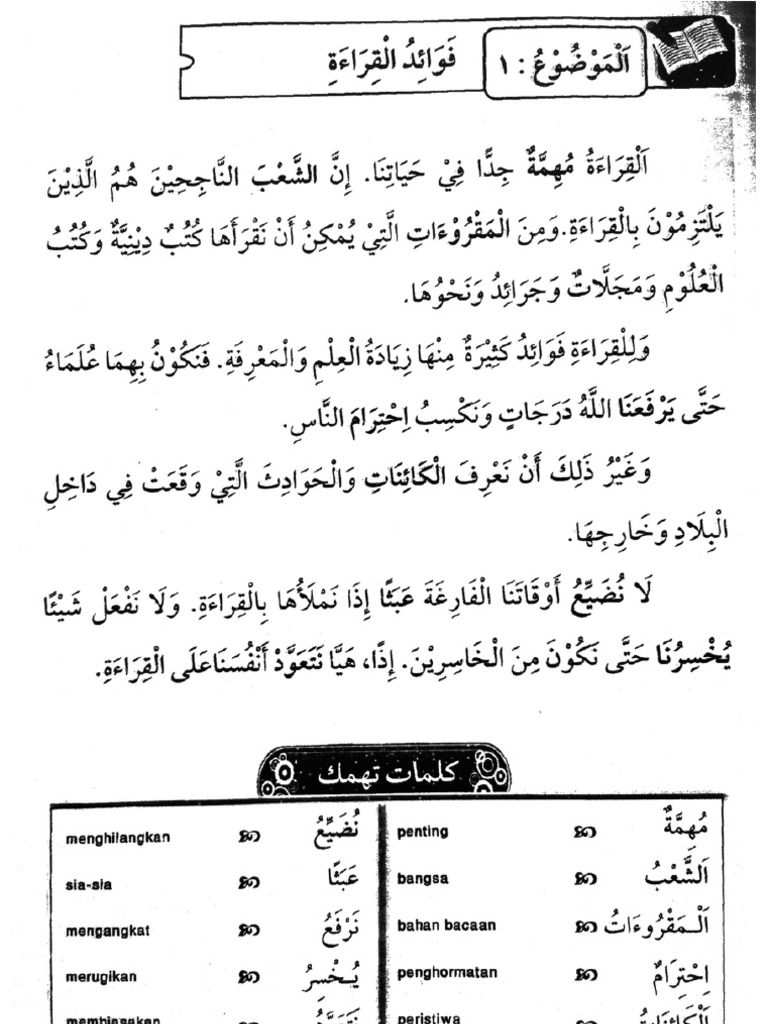 اَلْمَوْضُوْعُ : ١ فَوَائِدُ الْقِرَاءَةِ
اَلْقِرَاءَةُ مُهِمَّةٌ جِدًّا فِيْ حَيَاتِنَا. إِنَّ الشَّعْبَ النَّاجِحِيْنَ هُمُ الَّذِيْنَ
يَلْتَزِمُوْنَ بِالْقِرَاءَةِ.وَمِنَ الْمَقْرُوْءَاتِ الَّتِيْ يُمْكِنُ أَنْ نَقْرَأَهَا كُتُبٌ دِيْنِيَّةٌ وَكُتُبُ
الْعُلُوْمِ وَمَجَلَّاتٌ وَجَرَائِدُ وَنَحْوُهَا.
وَلِلْقِرَاءَةِ فَوَائِدُ كَثِيْرَةٌ مِنْهَا زِيَادَةُ الْعِلْمِ وَالْمَعْرِفَةِ. فَنَكُوْنُ بِهِمَا عُلَمَاءُ
حَتَّى يَرْفَعَنَا اللَّهُ دَرَجَاتٍ وَنَكْسِبُ اِحْتِرَامَ النَّاسِ.
وَغَيْرُ ذَلِكَ أَنْ نَعْرِفَ الْكَائِنَاتِ وَالْحَوَادِثَ الَّتِيْ وَقَعَتْ فِي دَاخِلِ
الْبِلَادِ وَخَارِجِهَا.
لَا نُضَيِّعُ أَوْقَاتَنَا الْفَارِغَةَ عَبَثًا إِذَا نَمْلَأُهَا بِالْقِرَاءَةِ. وَلَا نَفْعَلْ شَيْئًا
يُخْسِرُنَا حَتَّى نَكُوْنَ مِنَ الْخَاسِرِيْنَ. إِذًا، هَيَّا نَتَعَوَّدْ أَنْفُسَنَا عَلَى الْقِرَاءَةِ.
كلمات تهمك
مُهِمَّةٌ penting نُضَيِّعُ menghilangkan
اَلشَّعْبُ bangsa عَبَثًا sia-sia
اَلْـمَقْرُوءَاتُ bahan bacaan نَرْفَعُ mengangkat
اِحْتِرَامٌ penghormatan يُـخْسِرُ merugikan
اَلْكَائِنَاتُ peristiwa نَتَعَوَّدُ membiasakan